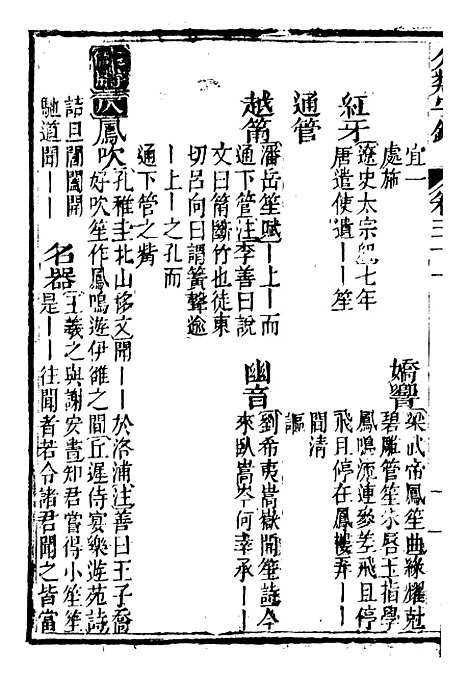 宜一
處施
嬌響
梁武帝鳳笙曲綠耀尅
碧雕管笙朱唇玉指學
鳳鳴流連參差飛且停
飛且停在鳳樓弄丨丨
間清
謳
紅牙
遼史太宗紀七年
唐遣使遺丨丨笙
通管
越筩
潘岳笙賦丨上丨而
通下管注李善曰說
文曰筩斷竹也徒東
切呂向曰謂簧聲逾
丨上丨之孔而
通下管之觜
幽音
劉希夷嵩嶽聞笙詩今
來臥嵩岑何幸承丨丨
鳳吹
孔稚圭北山移文聞丨丨於洛浦注善曰王子喬
好吹笙作鳳鳴遊伊雒之間丘遲侍宴樂遊苑詩
詰旦閶闔開
馳道聞丨丨
名器
王羲之與謝安書知君嘗得小笙笙
是丨丨往聞者若令諸君聞之皆當